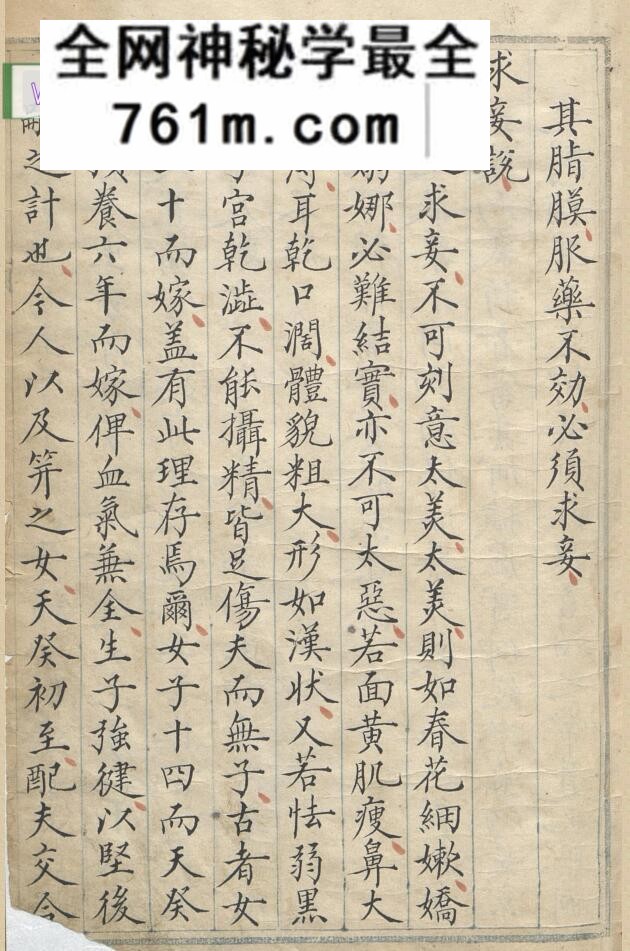 全网神秘学最全
761m.com
其脂膜服藥不効必須求妾
求妾說
求妾不可刻意太美太美則如春花細嫩嬌
娜必難結實亦不可太惡若面黃肌瘦鼻大
耳乾口濶體貌粗大形如漢狀又若怯弱黑
宮乾澁不能攝精皆足傷夫而無子古者女
十而嫁盖有此理存焉爾女子十四而天癸
養六年而嫁俾血氣兼全生子強健以堅後
之計也今人以及笄之女天癸初至配夫交合